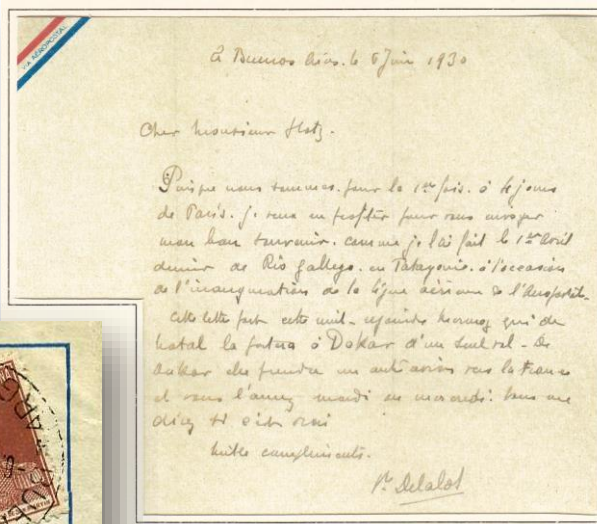 VIA AEROPOSTAL
à Buenos Aires. le 6 Juin 1930
Cher Monsieur
Puisque nous sommes. pour la 1ère fois. à 4 jours
de Paris. je veux en profiter pour vous envoyer
mon bon souvenir. comme je l'ai fait le 1er avril
dernier de Rio Gallego. en Patagonie. à l'occasion
de l'inauguration de la ligne aérienne de l'Aeropostale.
Cette lettre part cette nuit. rejoindre Mermoz qui de
Natal la portera à Dakar d'un seul vol. De
Dakar elle prendra un autre avion vers la France
et vous l'aurez mardi ou mercredi. Vous me
direz si c'est vrai
Mille compliments.
Delalot